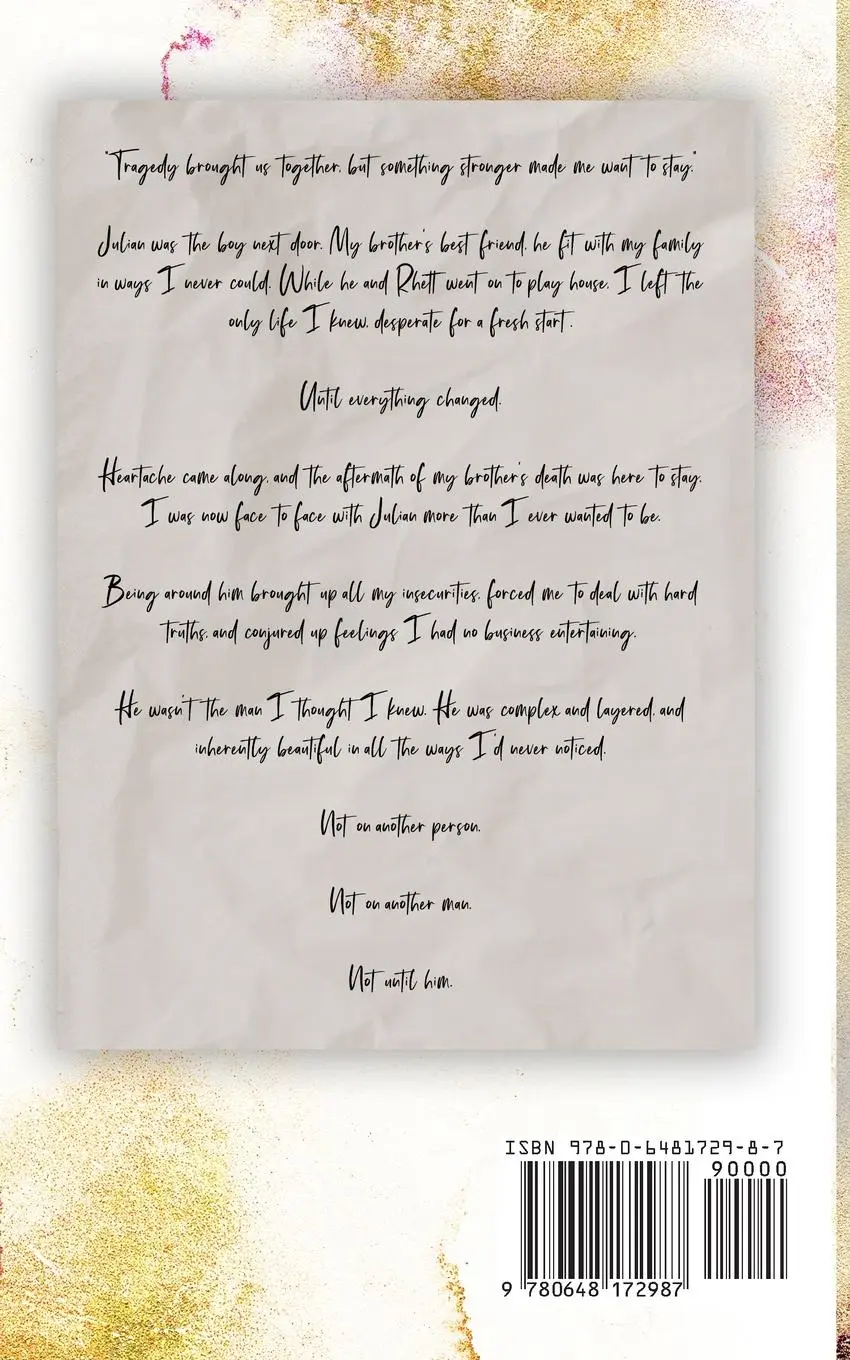 "Tragedy brought us together, but something stronger made me want to stay."
Julian was the boy next door. My brother's best friend, he fit with my family
in ways I never could. While he and Rhett went on to play house, I left the
only life I knew, desperate for a fresh start.
Until everything changed.
Heartache came along, and the aftermath of my brother's death was here to stay.
I was now face to face with Julian more than I ever wanted to be.
Being around him brought up all my insecurities, forced me to deal with hard
truths, and conjured up feelings I had no business entertaining.
He wasn't the man I thought I knew. He was complex and layered, and
inherently beautiful in all the ways I'd never noticed.
Not on another person.
Not on another man.
Not until him.
ISBN 978-0-6481729-8-7
90000
9 780648 172987